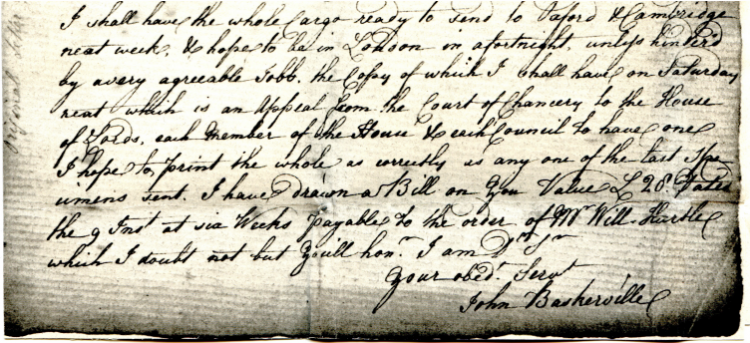 I shall have the whole Cargo ready to send to Oxford & Cambridge
next week, & hope to be in London in a fortnight, unless hinder'd
by a very agreeable Jobb, the Copy of which I shall have on Saturday
next which is an Appeal from the Court of Chancery to the House
of Lords, each Member of the House & each Council to have one
I hope to print the whole as correctly as any one of the last Spe
cimens sent. I have drawn a Bill on You Value £ 28. Dated
the 9 Inst at six Weeks payable to the order of Mr Will.
which I doubt not but You'll honr. I am Dr Sr
Your obedt. Servt
John Baskerville